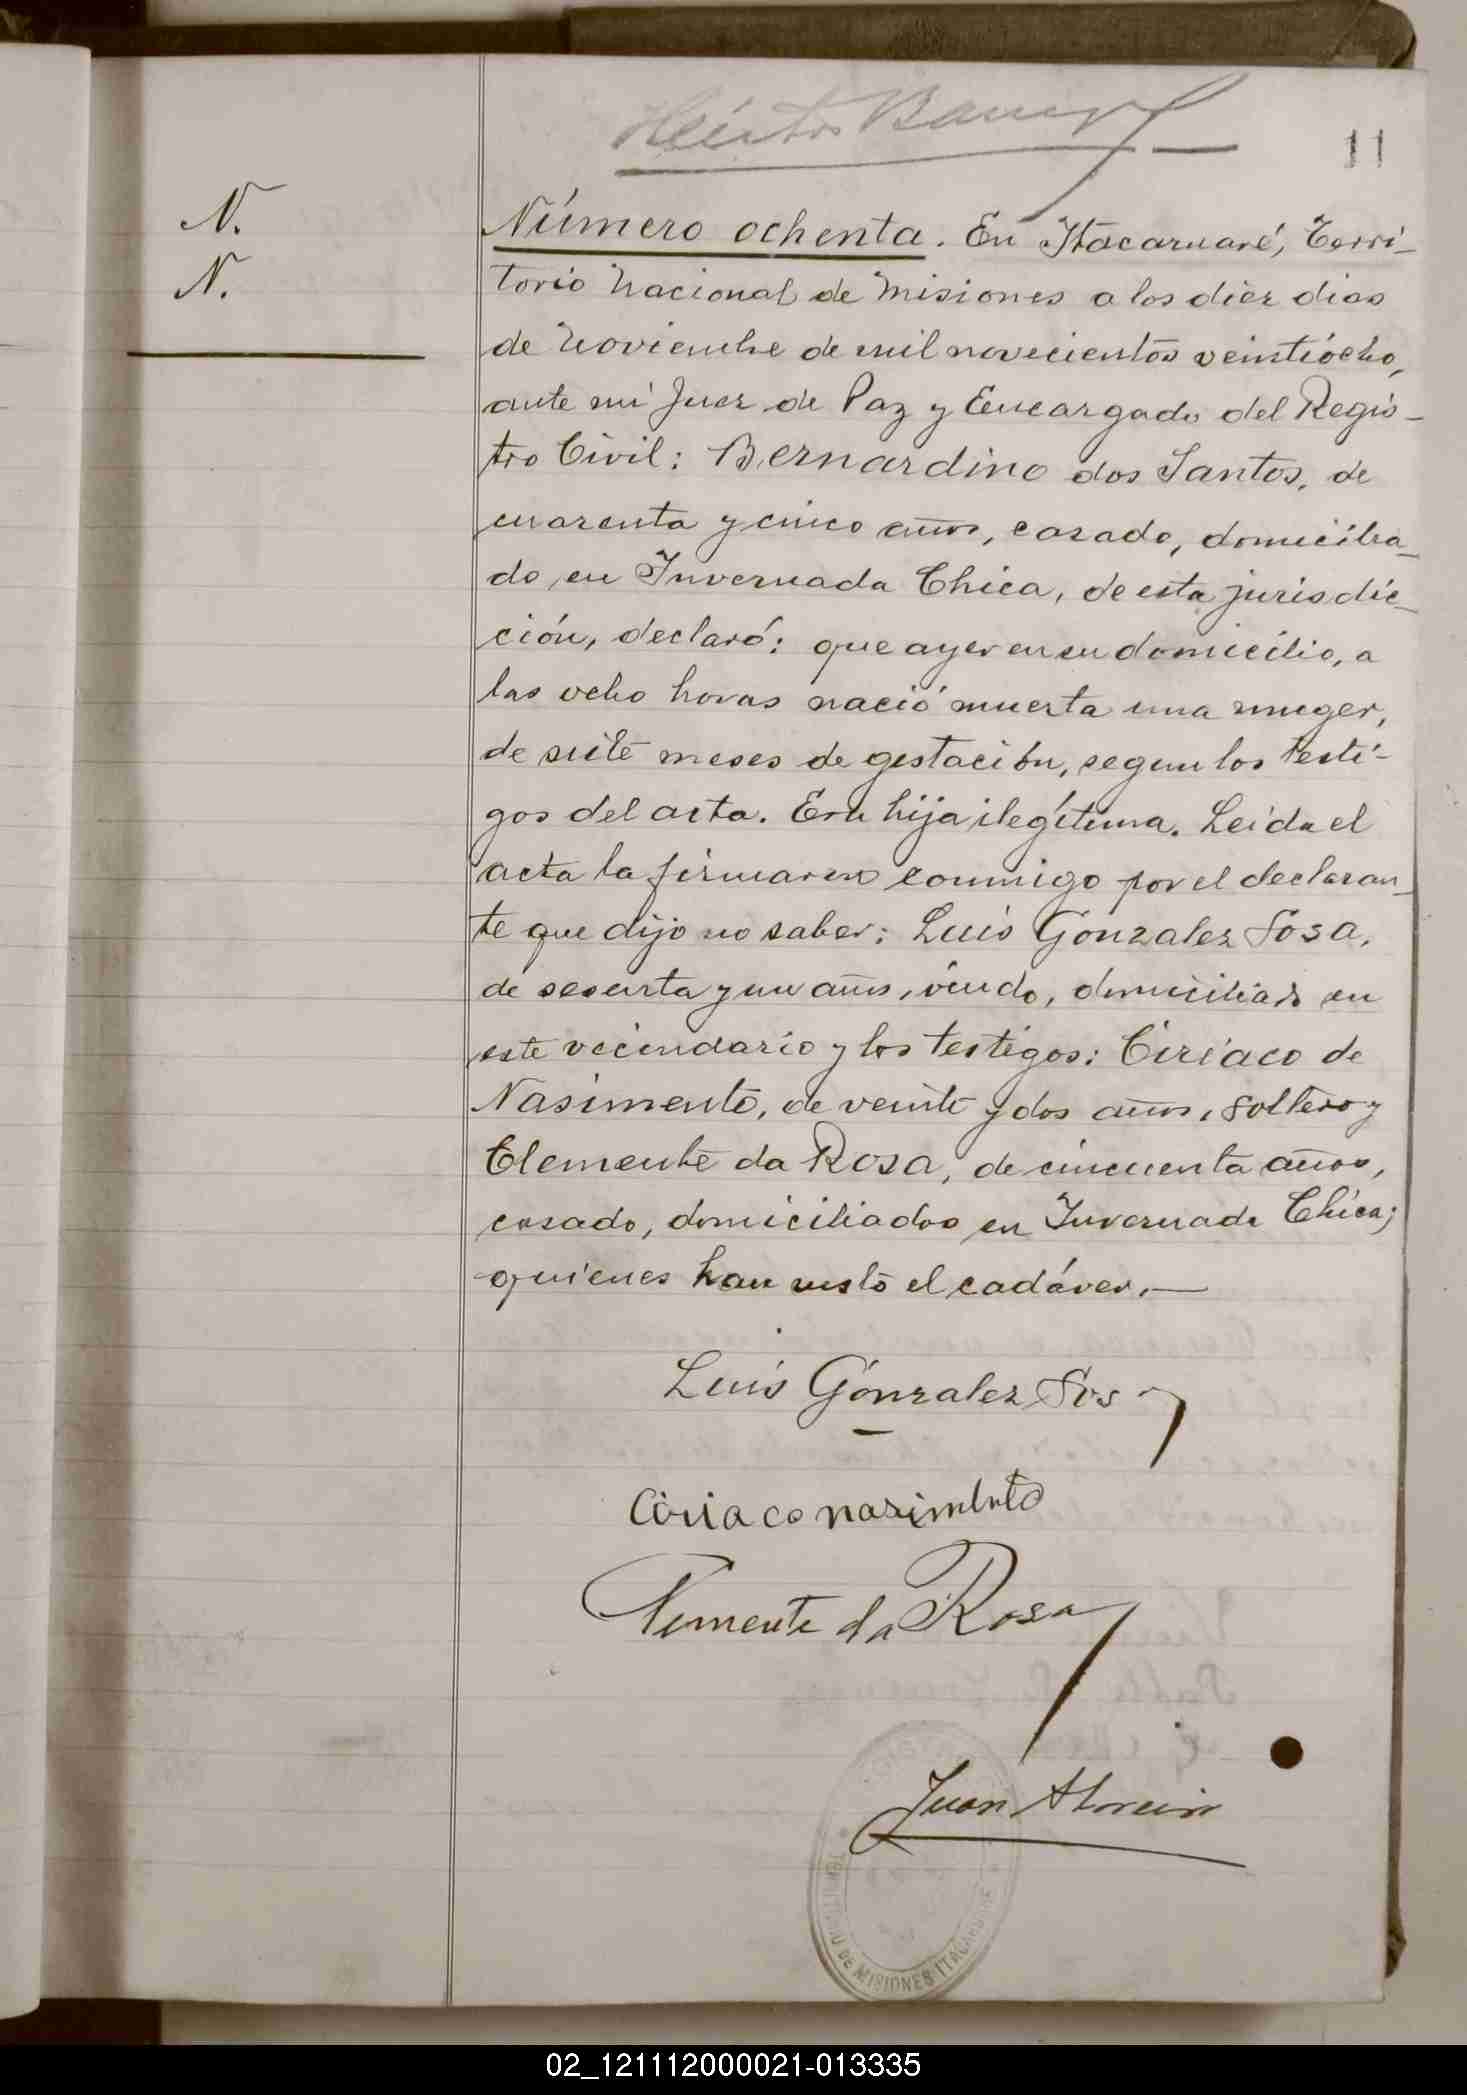 11
N.
N.
Número ochenta. En Itacaruaré, Terri-
torio Nacional de Misiones a los diez dias
de Noviembre de mil novecientos veintiocho,
ante mi Juez de Paz y Encargado del Regis-
tro Civil: Bernardino dos Santos, de
cuarenta y cinco años, casado, domicilia-
do en Invernada Chica, de esta jurisdic-
ción, declaró: que ayer en su domicilio, a
las ocho horas nació muerta una muger,
de siete meses de gestación, segun los testi-
gos del acta. Era hija ilegítima. Leida el
acta la firmaron conmigo por el declaran-
te que dijo no saber: Luis Gonzalez Sosa,
de sesenta y un años, viudo, domiciliado en
este vecindario y los testigos: Ciriaco de
Nasimento, de veinte y dos años, soltero y
Clemente da Rosa, de cincuenta años,
casado, domiciliados en Invernada Chica;
quienes han visto el cadáver.—
Luis Gonzalez Sosa
Ciriaco nasimento
Clemente da Rosa
Juan
TERRITORIO DE MISIONES ITACARUARE
02_121112000021-013335